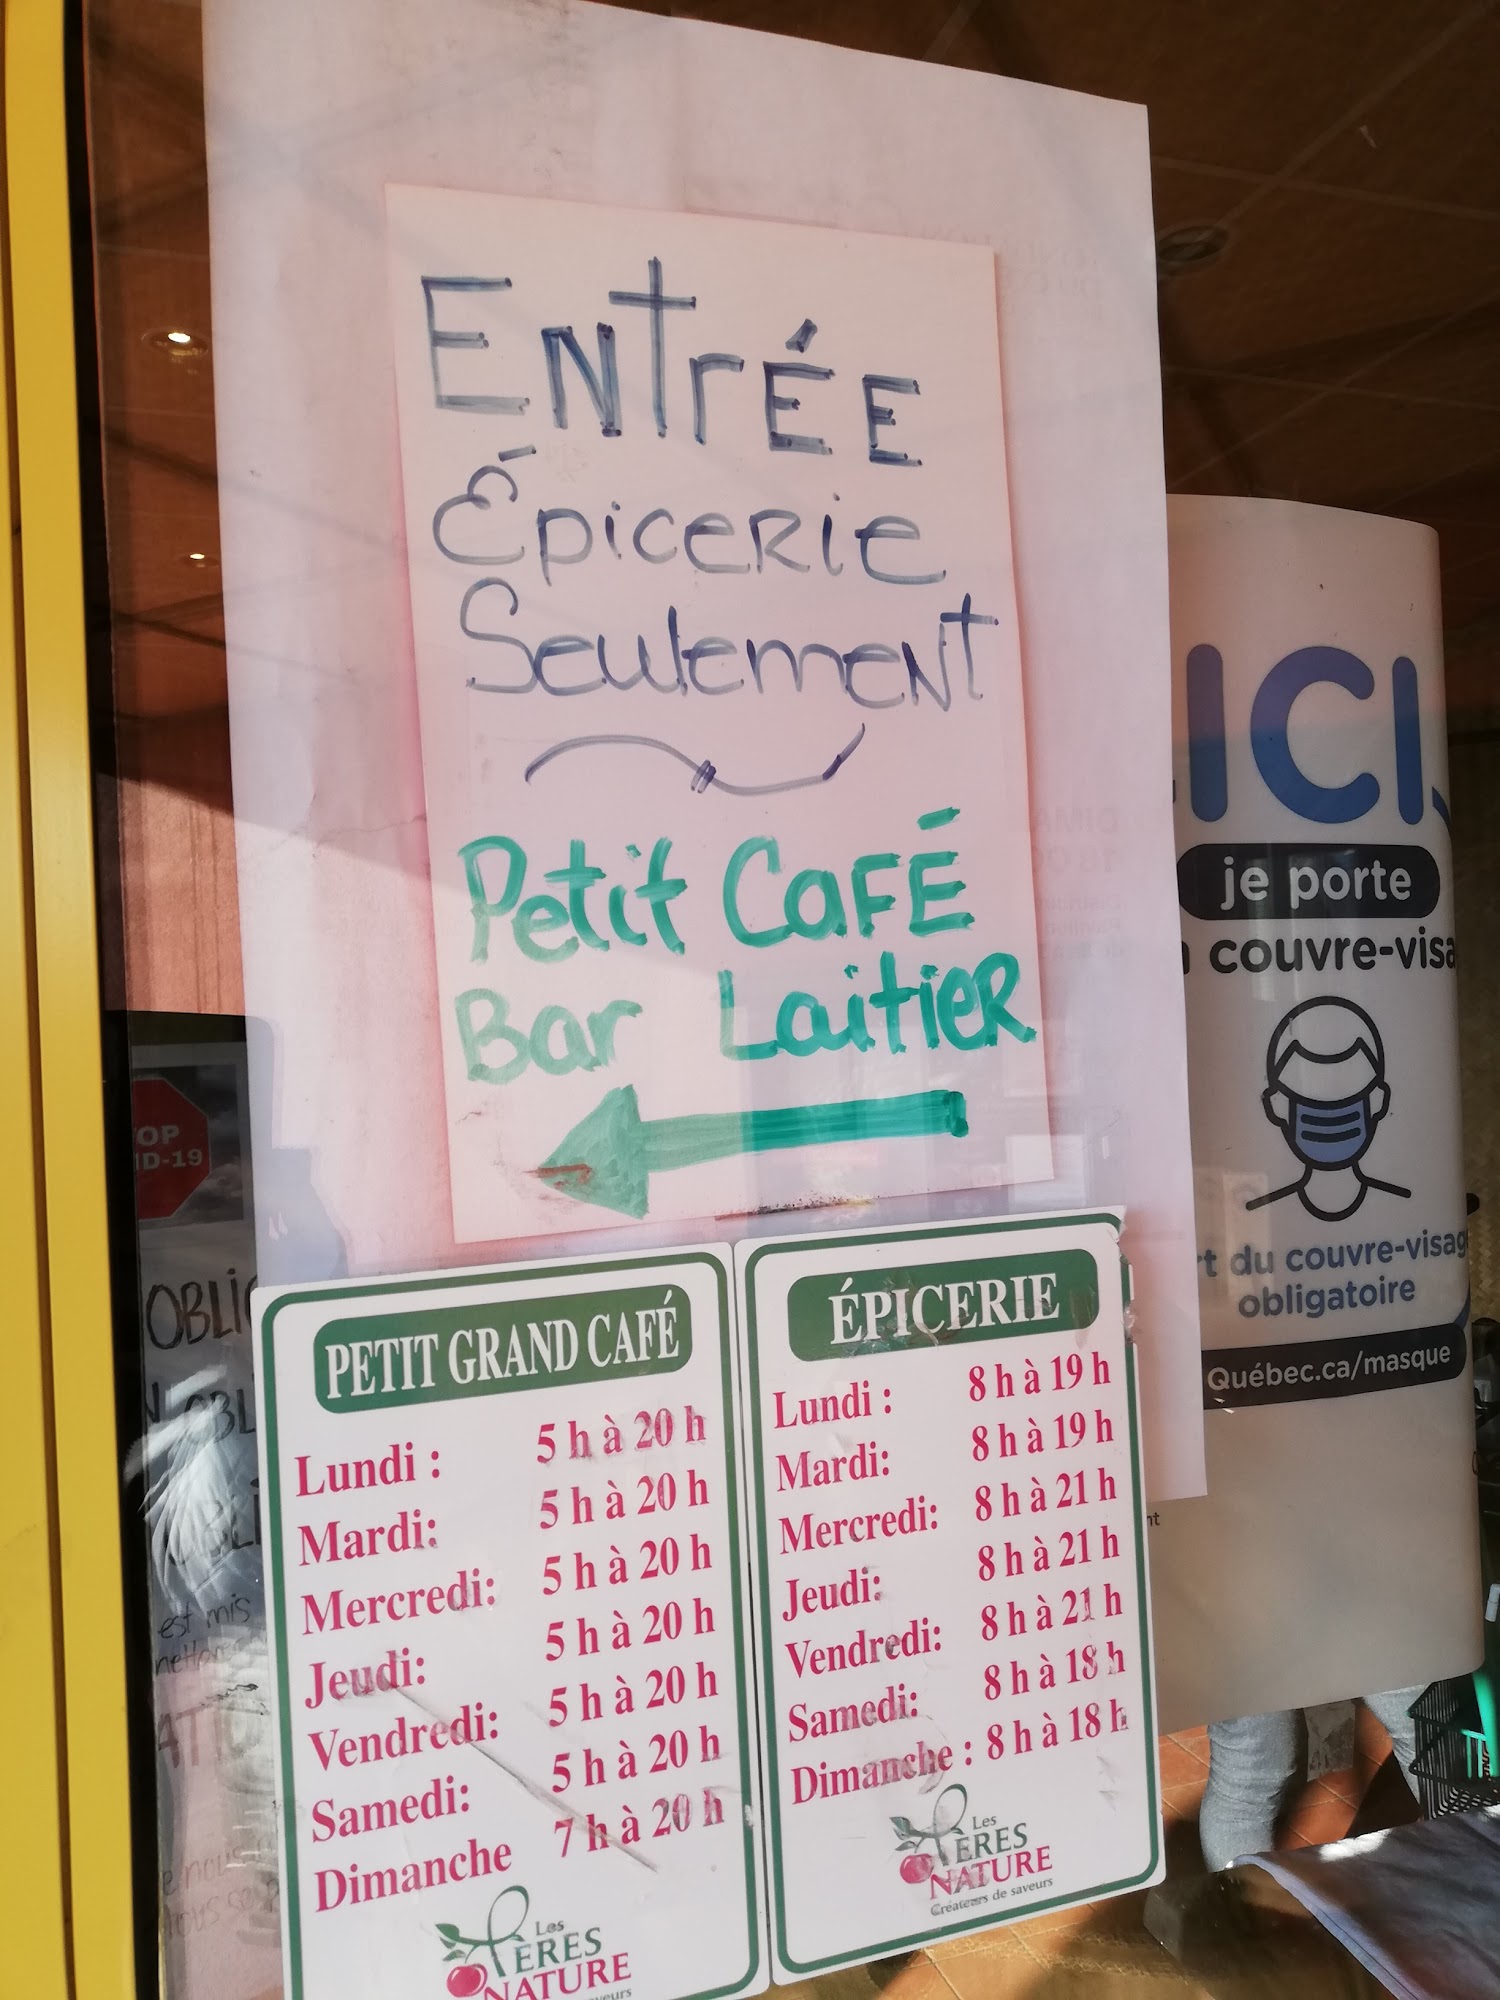 ENTRÉE
Épicerie
Seulement
Petit Café
Bar Laitier
PETIT GRAND CAFÉ
Lundi : 5 h à 20 h
Mardi: 5 h à 20 h
Mercredi: 5 h à 20 h
Jeudi: 5 h à 20 h
Vendredi: 5 h à 20 h
Samedi: 5 h à 20 h
Dimanche 7 h à 20 h
Les
PÈRES
NATURE
ÉPICERIE
Lundi : 8 h à 19 h
Mardi: 8 h à 19 h
Mercredi: 8 h à 21 h
Jeudi: 8 h à 21 h
Vendredi: 8 h à 21 h
Samedi: 8 h à 18 h
Dimanche : 8 h à 18 h
Les
PÈRES
NATURE
Créateurs de saveurs
ICI,
je porte
couvre-visa
du couvre-visag
obligatoire
Québec.ca/masque
OP
ID-19
OBLIG
est mis